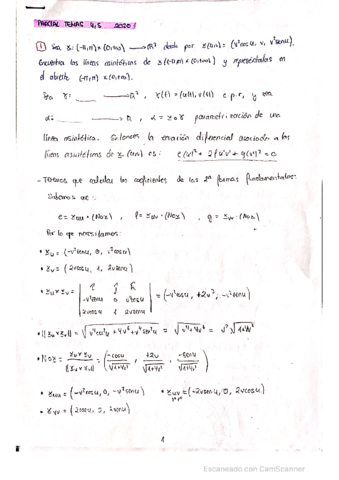 PARCIAL TEMAS 4,5 2020!
① Sea x: (-π,π) × (0,+∞) → ℝ³ dada por x(u,v) = (v²cosu, v, v²senu).
Encuentra las líneas asintóticas de x((-π,π) × (0,+∞)) y represéntalas en
el abierto (-π,π) × (0,+∞).
Sea γ: → ℝ², γ(t) = (u(t), v(t)) c.p.r, y sea
α: → ℝ, α = x∘γ parametrización de una
línea asintótica. Entonces la ecuación diferencial asociada a las
líneas asintóticas de x(u,v) es: e(u')² + 2f u'v' + g(v')² = 0
- Tenemos que calcular los coeficientes de las 2ª formas fundamentales.
Sabemos que:
e = xuu · (N∘x) , f = xuv · (N∘x) , g = xvv · (N∘x)
Por lo que necesitamos:
• xu = (-v²senu, 0, v²cosu)
• xv = (2vcosu, 1, 2vsenu)
• xu × xv = | i j k ; -v²senu 0 v²cosu ; 2vcosu 1 2vsenu | = (-v²cosu, +2v³, -v²senu)
• ||xu × xv|| = √(v⁴cos²u + 4v⁶ + v⁴sen²u) = √(v⁴ + 4v⁶) = v²√(1+4v²)
• N∘x = (xu × xv)/||xu × xv|| = (-cosu/√(1+4v²), +2v/√(1+4v²), -senu/√(1+4v²))
• xuu = (-v²cosu, 0, -v²senu) • xuv = (-2vsenu, 0, 2vcosu)
• xvv = (2cosu, 0, 2senu)
1
Escaneado con CamScanner